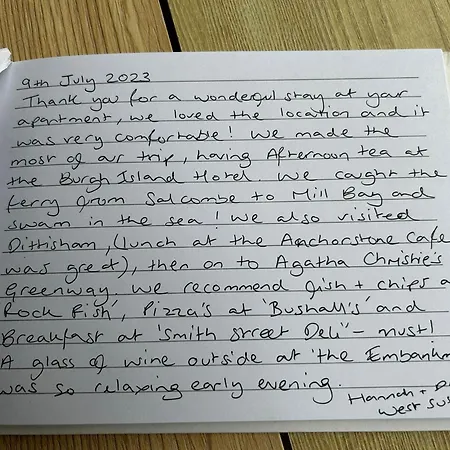 9th July 2023
Thank you for a wonderful stay at your
apartment, we loved the location and it
was very comfortable! We made the
most of our trip, having Afternoon tea at
the Burgh Island Hotel. We caught the
ferry from Salcombe to Mill Bay and
swam in the sea! We also visited
Dittisham, (lunch at the Anchorstone Cafe
was great), then on to Agatha Christie's
Greenway. We recommend fish + chips a
Rock Fish', Pizza's at 'Bushall's' and
Breakfast at 'Smith Street Deli' - must!
A glass of wine outside at 'the Embank
was so relaxing early evening.
Hannah +
West Sus